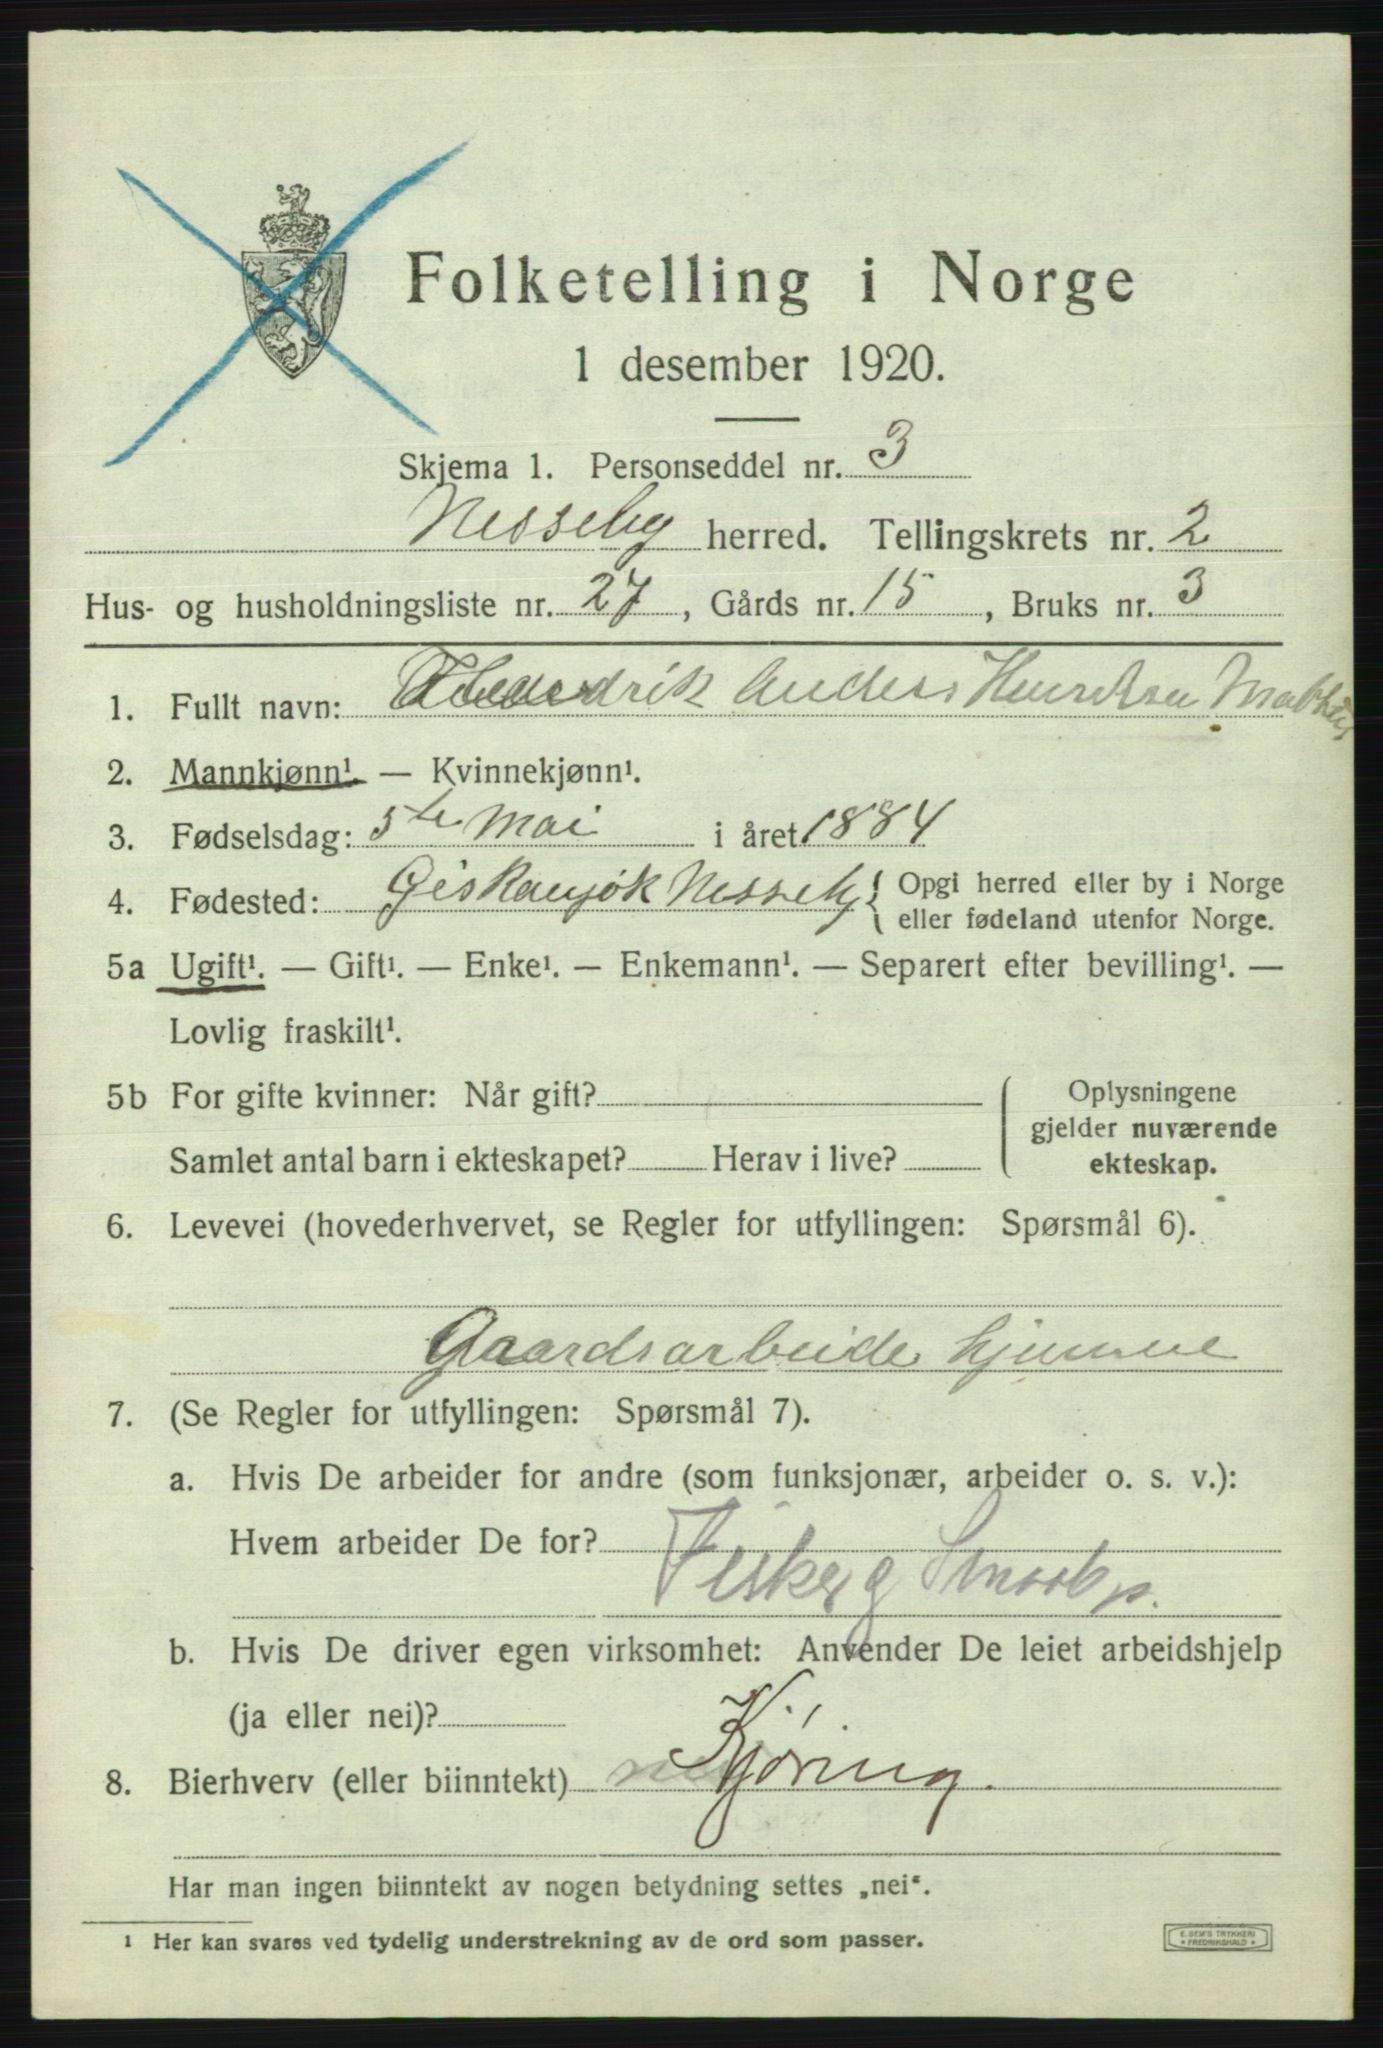 Folketelling i Norge
1 desember 1920.
Skjema 1. Personseddel nr. 3
Nesseby herred. Tellingskrets nr. 2
Hus- og husholdningsliste nr. 27, Gårds nr. 15, Bruks nr. 3
1. Fullt navn: Anders Henriksen
2. Mannkjønn¹. — Kvinnekjønn¹.
3. Fødselsdag: 5te Mai i året 1884
4. Fødested: Nesseby { Opgi herred eller by i Norge
eller fødeland utenfor Norge.
5a Ugift¹. — Gift¹. — Enke¹. — Enkemann¹. — Separert efter bevilling¹. —
Lovlig fraskilt¹.
5b For gifte kvinner: Når gift? ( Oplysningene
gjelder nuværende
Samlet antal barn i ekteskapet? Herav i live? ekteskap.
6. Levevei (hovederhvervet, se Regler for utfyllingen: Spørsmål 6).
Gaardsarbeide hjemme
7. (Se Regler for utfyllingen: Spørsmål 7).
a. Hvis De arbeider for andre (som funksjonær, arbeider o. s. v.):
Hvem arbeider De for?
Fisker g
b. Hvis De driver egen virksomhet: Anvender De leiet arbeidshjelp
(ja eller nei)?
8. Bierhverv (eller biinntekt) Kjöring.
Har man ingen biinntekt av nogen betydning settes „nei“.
¹ Her kan svares ved tydelig understrekning av de ord som passer.
E. SEM'S TRYKKERI
* FREDRIKSHALD *